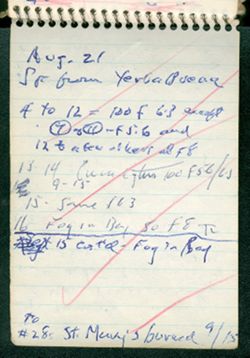 Aug. 21
SF from Yerba Buena
4 to 12 = 100 f 6.3 except
⑦ - ⑪ - F5.6 and
12 to a few others at F8
13 14 100 F5.6/6.3
9-15
15 - Same 163
16 Fog in Bay 50 F8
15 contd - Fog in Bay
To
#28 - St. Mary's burned 9/15